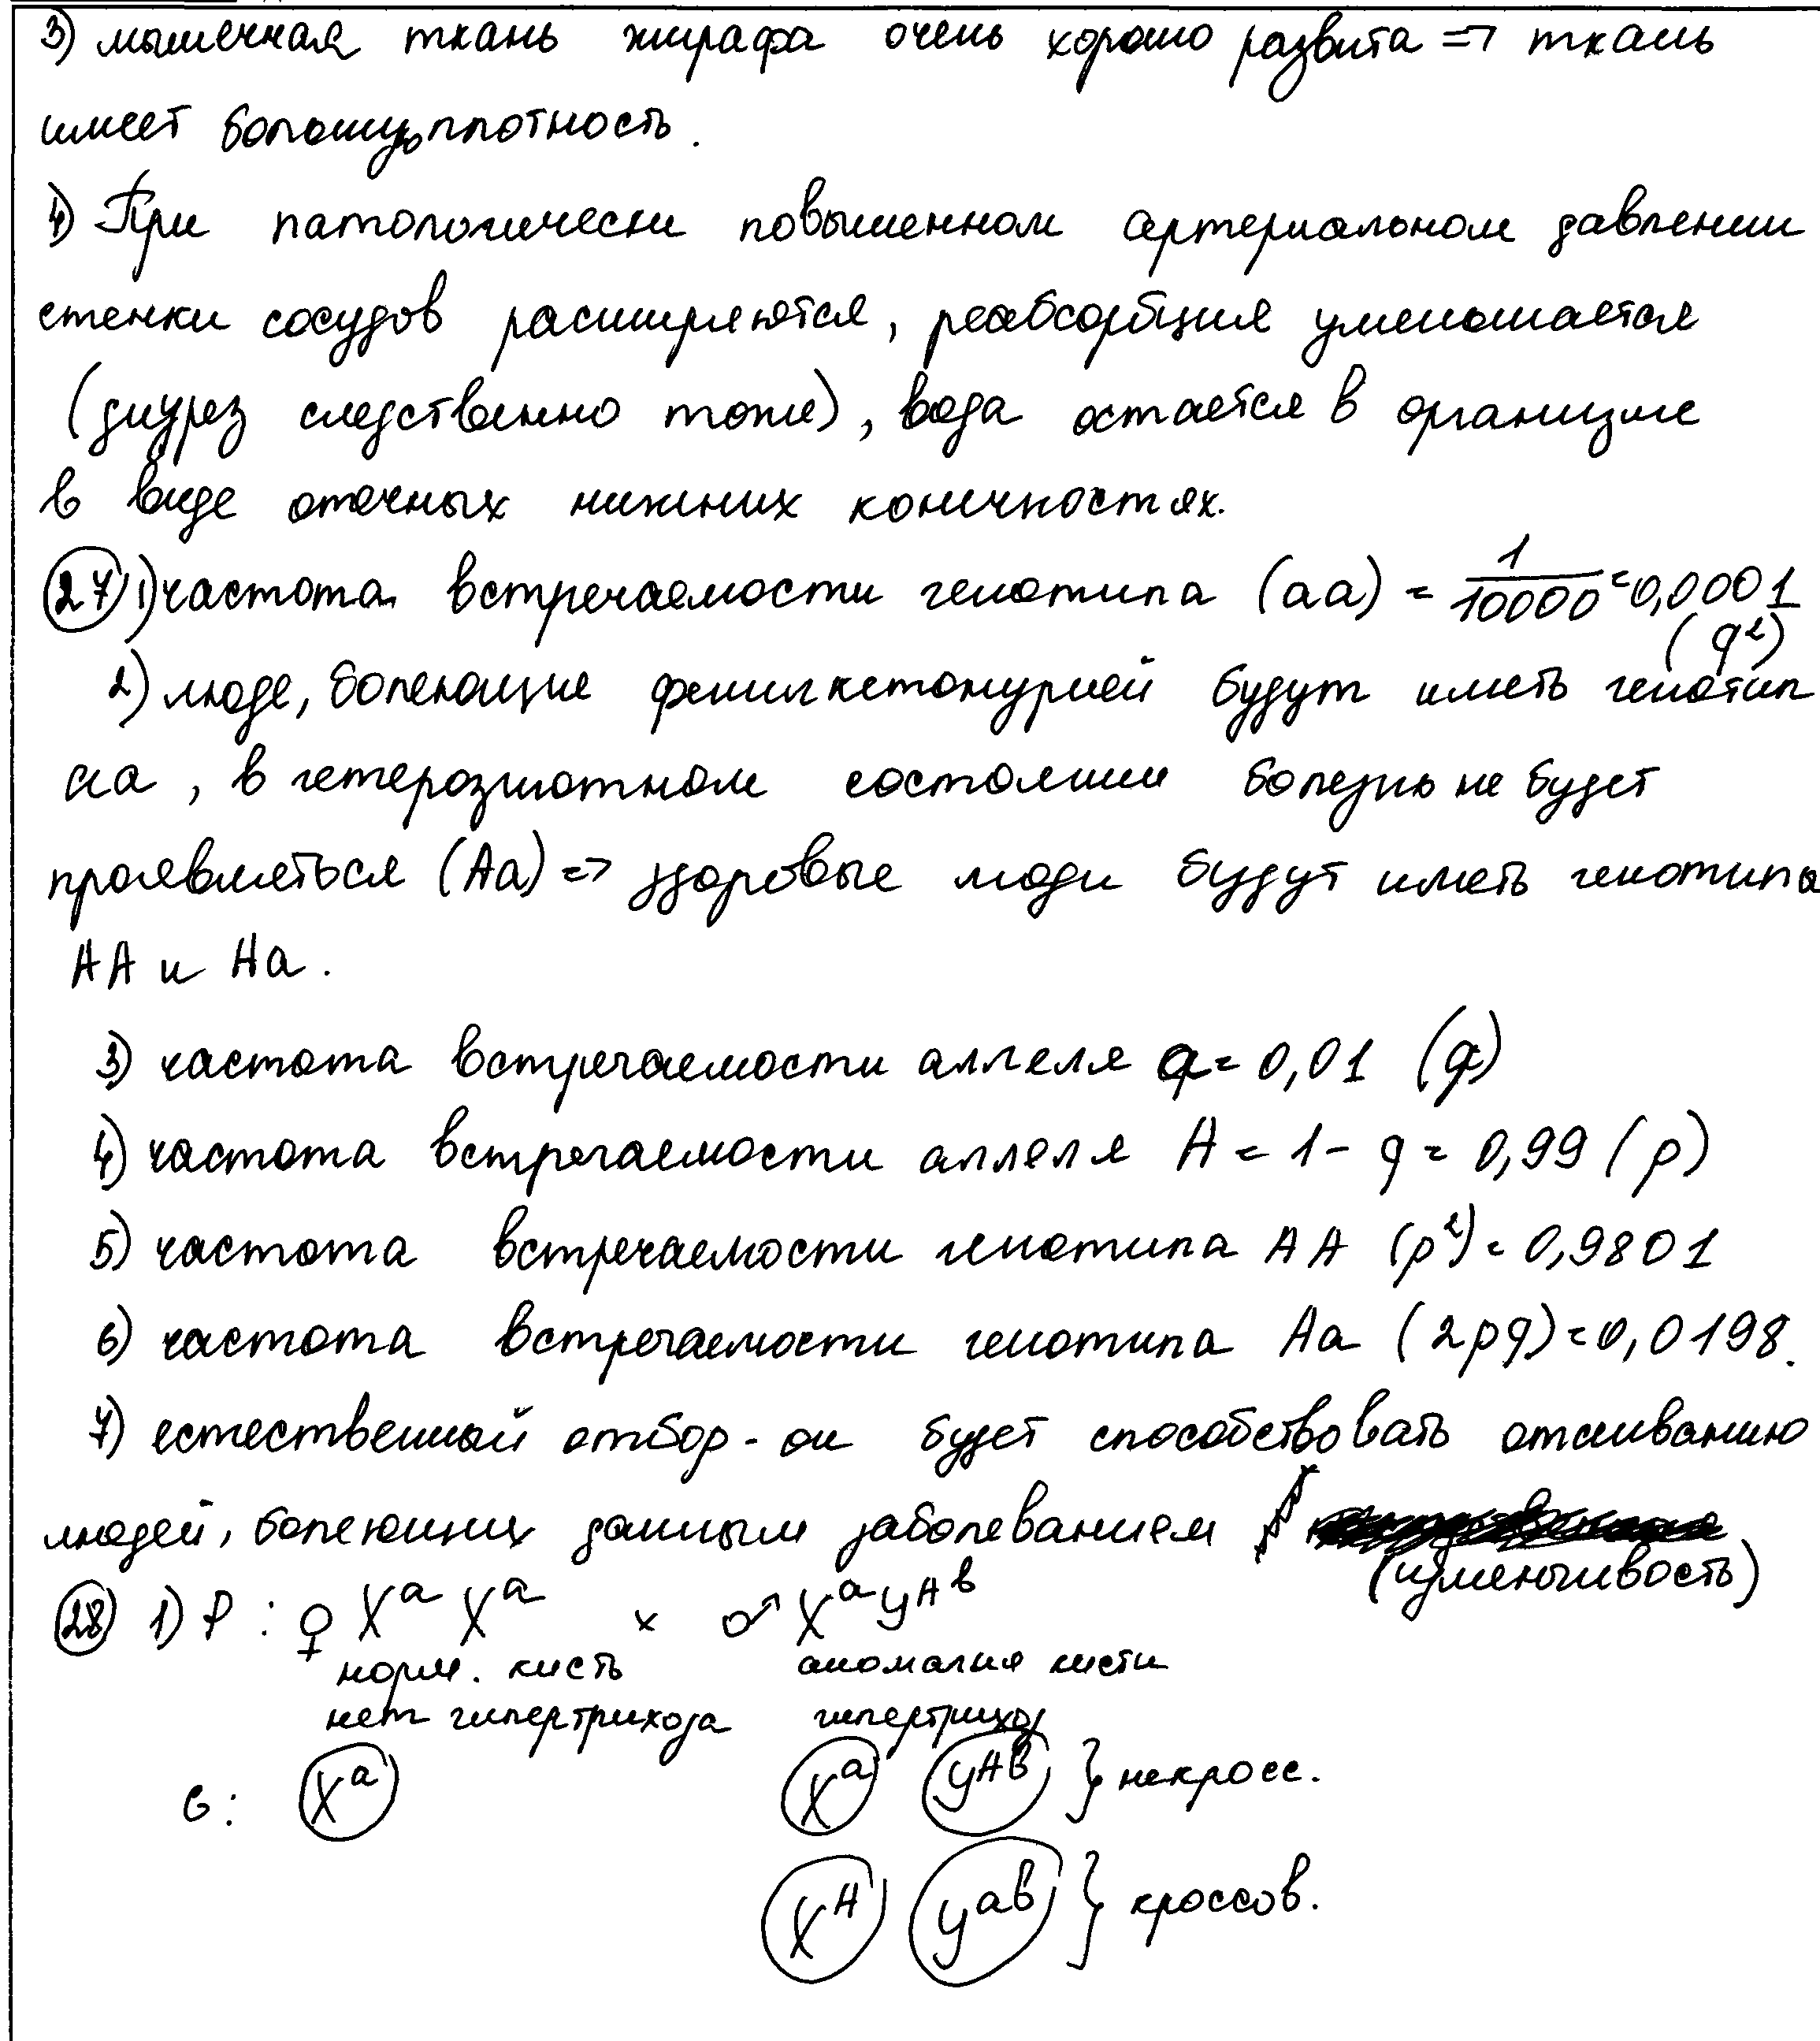 3) мышечная ткань жирафа очень хорошо развита => ткань
имеет большую плотность.
4) При патологически повышенном артериальном давлении
стенки сосудов расширяются, реабсорбция уменьшается
(диурез следственно тоже), вода остается в организме
в виде отечных нижних конечностях.
27 1) частота встречаемости генотипа (аа) = 1/10000 = 0,0001
(q²)
2) люде, болеющие фенилкетонурией будут иметь генотип
аа, в гетерозиготном состоянии болезнь не будет
проявляться (Аа) => здоровые люди будут иметь генотипа
АА и Аа.
3) частота встречаемости аллеля а = 0,01 (q)
4) частота встречаемости аллеля А = 1 - q = 0,99 (p)
5) частота встречаемости генотипа АА (p²) = 0,9801
6) частота встречаемости генотипа Аа (2pq) = 0,0198.
7) естественный отбор - он будет способствовать отсеиванию
людей, болеющих данным заболеванием
(изменчивость)
28 1) P: ♀ XᵃXᵃ × ♂ XᵃYᴬᴮ
норм. кисть аномалия кисти
нет гипертрихоза гипертрихоз
G: Xᵃ Xᵃ Yᴬᴮ } некросс.
Xᴬ Yᵃᴮ } кроссов.